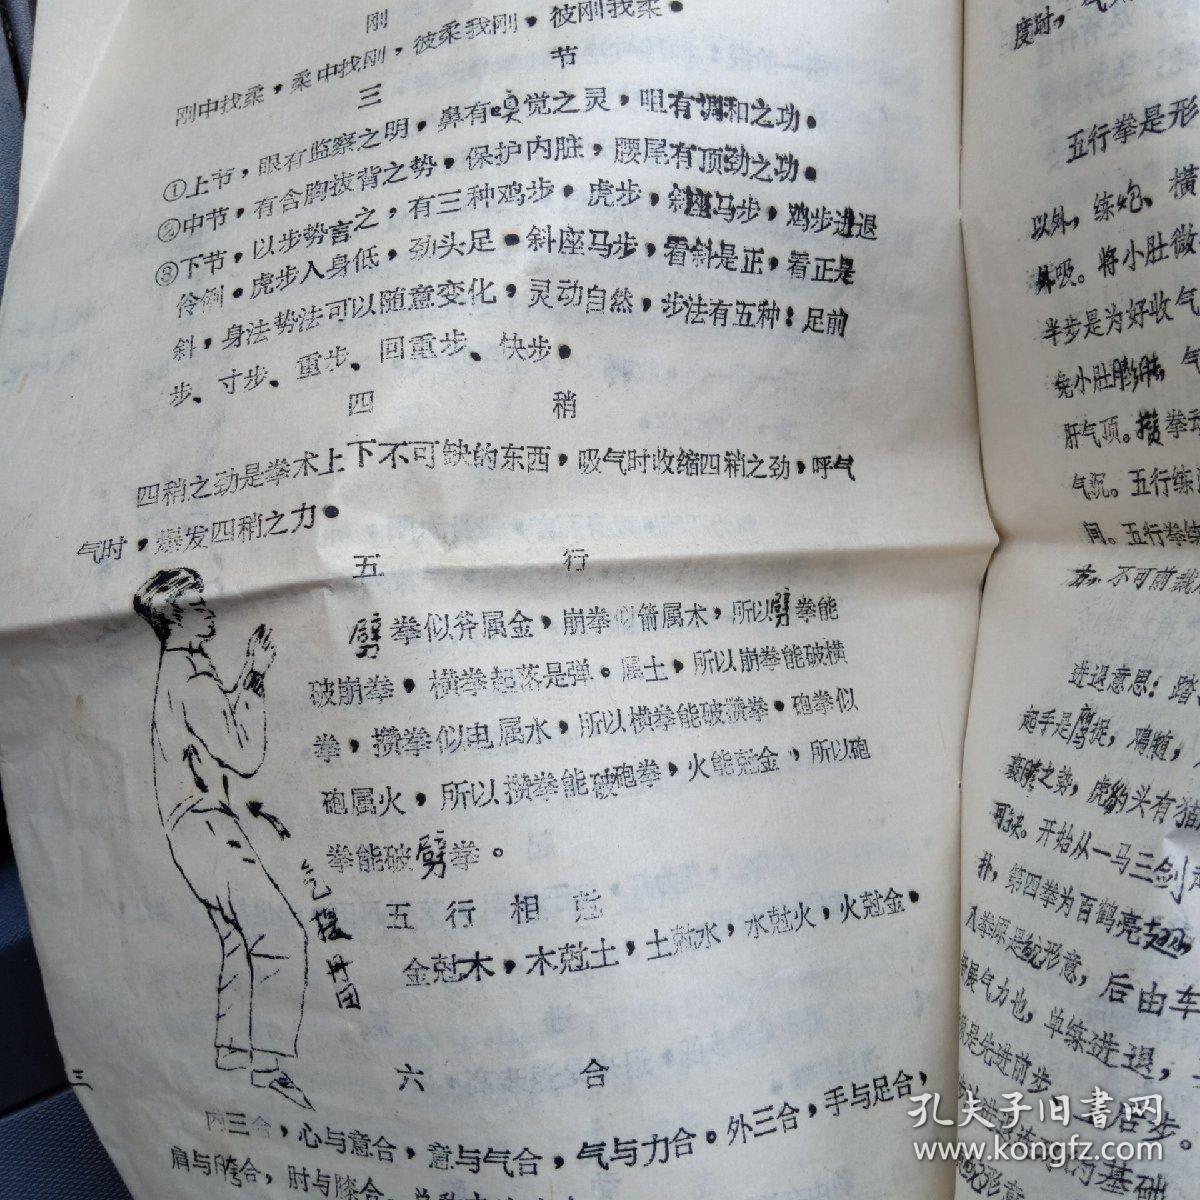 刚
刚中找柔，柔中找刚，彼柔我刚，彼刚我柔。
三 节
①上节，眼有监察之明，鼻有嗅觉之灵，咀有调和之功。
②中节，有含胸拔背之势，保护内脏，腰尾有顶劲之功。
③下节，以步势言之，有三种鸡步，虎步，斜座马步，鸡步进退
伶俐。虎步入身低，劲头足。斜座马步，看斜是正，看正是
斜，身法势法可以随意变化，灵动自然，步法有五种：足前
步、寸步、重步、回重步、快步。
四 稍
四稍之劲是拳术上下不可缺的东西，吸气时收缩四稍之劲，呼气
气时，爆发四稍之力。
五 行
劈拳似斧属金，崩拳似箭属木，所以劈拳能
破崩拳，横拳起落是弹。属土，所以崩拳能破横
拳，攒拳似电属水，所以横拳能破攒拳。砲拳似
砲属火，所以攒拳能破砲拳，火能尅金，所以砲
拳能破劈拳。
气 丹田
五行相尅
金尅木，木尅土，土尅水，水尅火，火尅金。
三
六 合
内三合，心与意合，意与气合，气与力合。外三合，手与足合，
肩与胯合，肘与膝合，
度时，气
五行拳是形
以外，练炮、横
外吸。将小肚微
半步是为好收气
免小肚膨胀，气
肝气顶。攒拳
气沉。五行练
间。五行拳练
方，不可前栽
进退意思：踏
起手是鹰捉，鸡腿，
裹胯之势，虎豹头有猫
可缺。开始从一马三剑
扑，第四拳为百鹤亮翅，
人拳原是蛇形意，后由车
展气力也，单练进退，
是先进前步，上后步。
步法进退法 为基础
蛇形意
孔夫子旧书网
www.kongfz.com